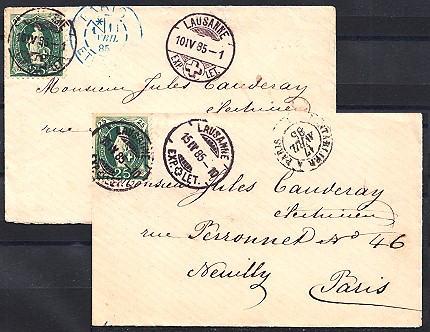 PARIS
11
AVRIL
85
LAUSANNE
10 IV 85 - 1
EXP. LET.
25
Monsieur Jules Cauderay
LAUSANNE
15 IV 85 - 10
EXP. LET.
25
PARIS
AVRIL
85
Monsieur Jules Cauderay
rue Perronnet No 46
Neuilly
Paris